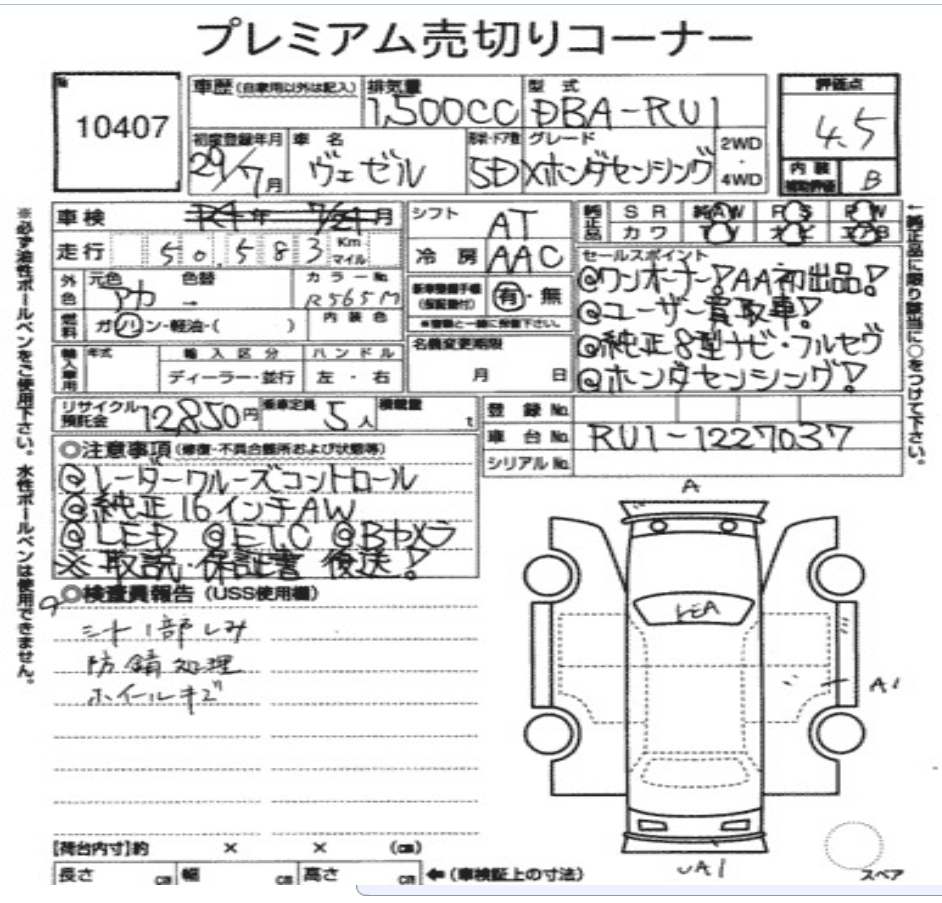 プレミアム売切りコーナー
№ 10407
車歴(自家用以外は記入) 排気量 1,500CC 型式 DBA-RU1
評価点 4.5
初度登録年月 29/7月 車名 ヴェゼル 形状・ドア数 5D グレード Xホンダセンシング 2WD・4WD
内装補助評価 B
車検 R4年 7/21月 シフト AT
純正品 SR 純AW PS PW
カワ TV ナビ エアB
走行 50,583 Km マイル 冷房 AAC
セールスポイント
◎ワンオーナー!AA初出品!
◎ユーザー買取車!
◎純正8型ナビ・フルセグ
◎ホンダセンシング!
外色 元色 アカ 色替 → カラーNo. R565M
新車整備手帳(保証書付) 有・無
※書類と一緒に保管下さい。
燃料 ガソリン・軽油・( ) 内装色
名義変更期限 月 日
輸入車用 年式 輸入区分 ハンドル
ディーラー・並行 左・右
リサイクル預託金 12,850円 乗車定員 5人 積載量 t
登録No.
車台No. RU1-1227037
シリアルNo.
◎注意事項(修復・不具合箇所および状態等)
◎レーダークルーズコントロール
◎純正16インチAW
◎LED ◎ETC ◎Bカメラ
※取説・保証書 後送!
◎検査員報告(USS使用欄)
シート1部しみ
防錆処理
ホイールキズ
A
LEA
A1
UA1
スペア
[荷台内寸]約 × × (㎝)
長さ ㎝ 幅 ㎝ 高さ ㎝ ←(車検証上の寸法)
※必ず油性ボールペンをご使用下さい。水性ボールペンは使用できません。
←純正品に限り該当に○をつけて下さい。